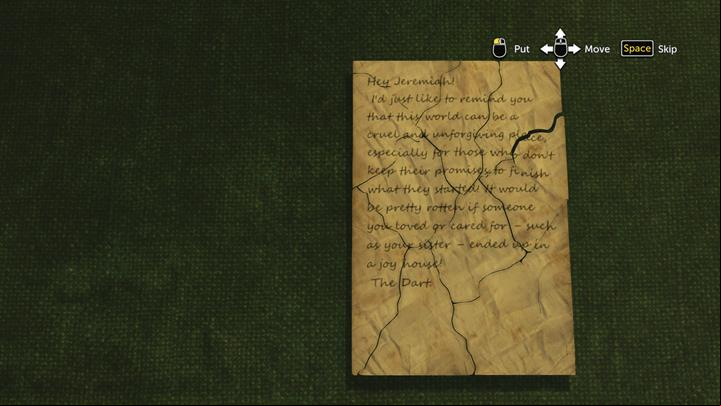 Put
Move
Space
Skip
Hey Jeremiah!
I'd just like to remind you
that this world can be a
cruel and unforgiving place,
especially for those who don't
keep their promises to finish
what they started! It would
be pretty rotten if someone
you loved or cared for – such
as your sister – ended up in
a joy house!
The Dart